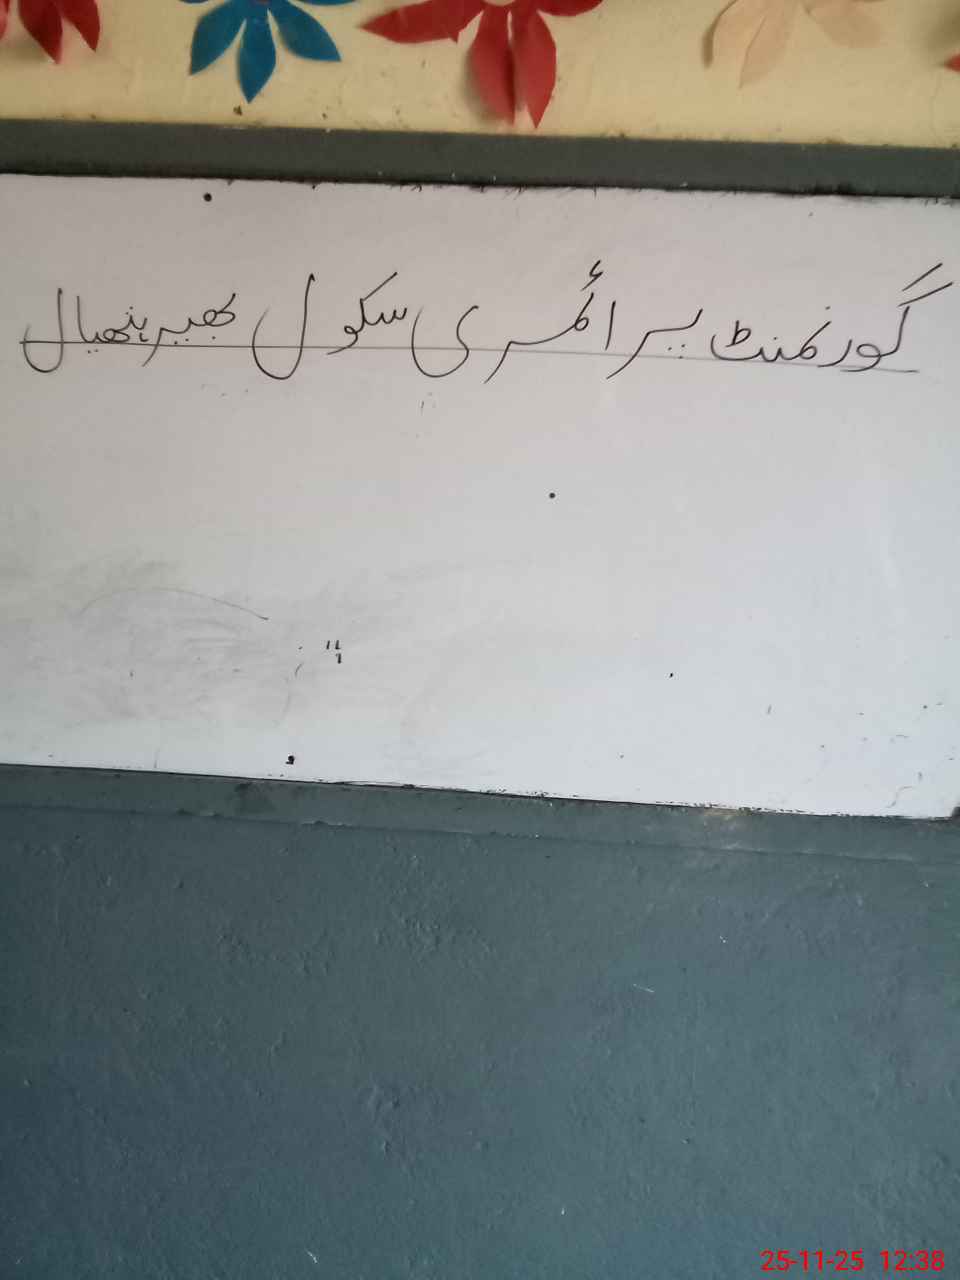 گورنمنٹ پرائمری سکول بھیر
25-11-25 12:38